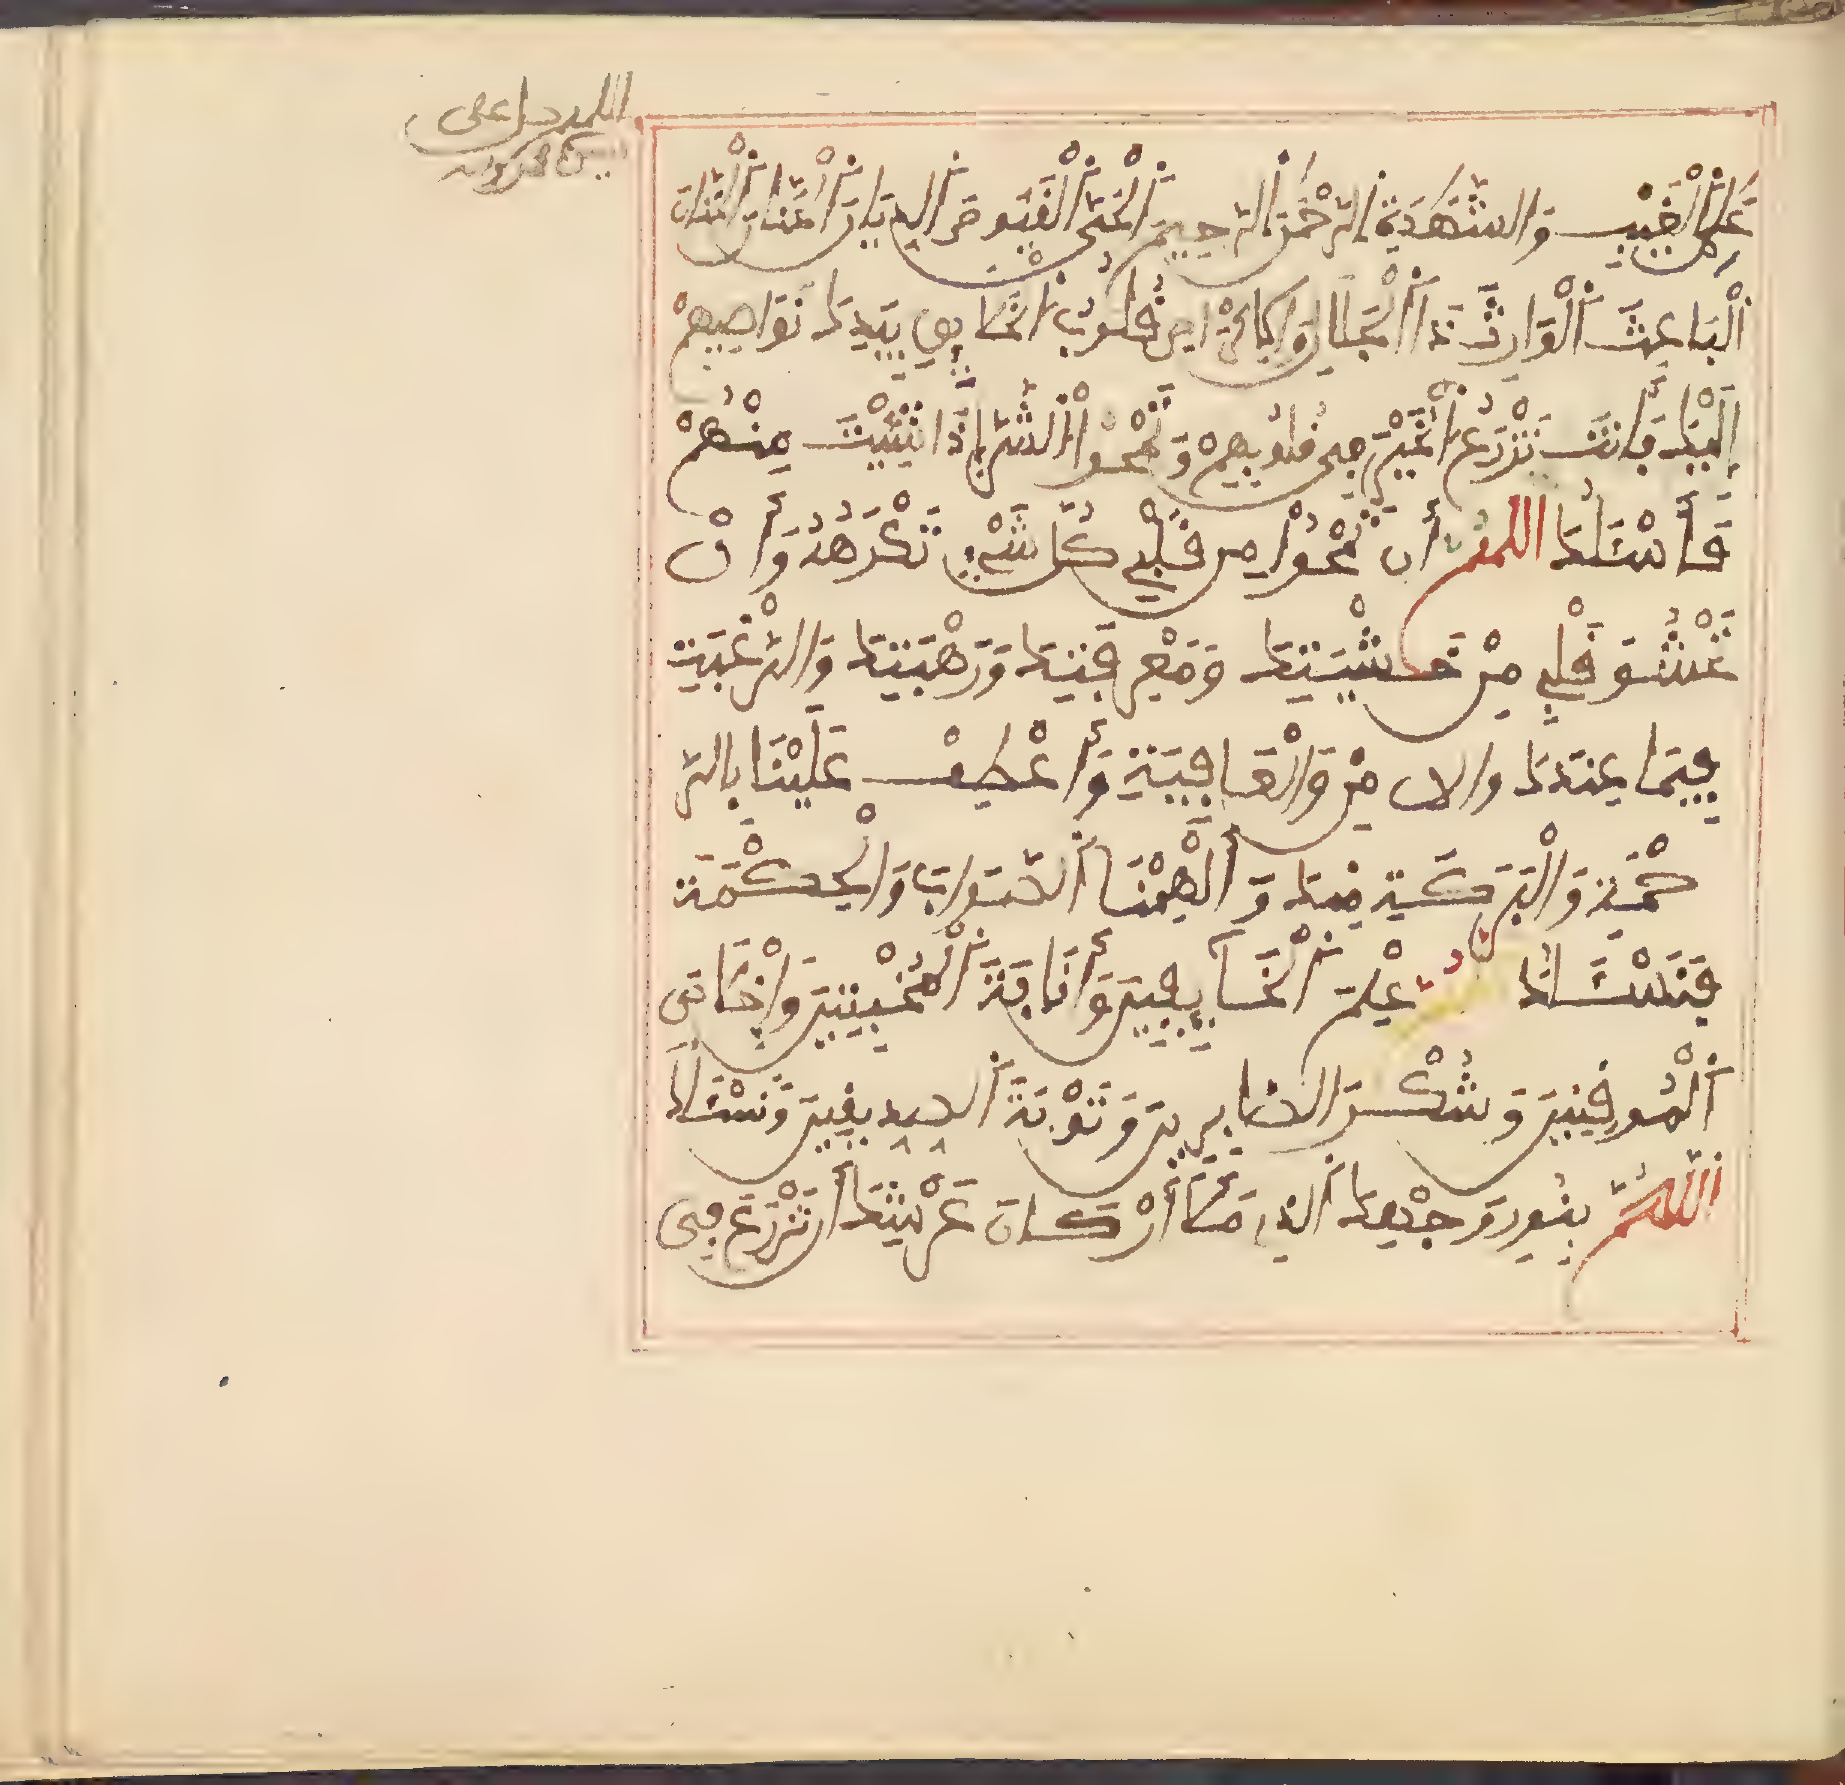 عَلِمَ الْغَيْبِ وَالشَّهَدَةِ الرَّحْمَنُ الرَّحِيمُ الْحَيُّ الْقَيُّومُ الدَّيَّانُ الْحَنَّانُ الْمَنَّانُ
الْبَاعِثُ الْوَارِثُ ذَا الْجَلَالِ وَالِاكْرَامِ قُلُوبُ الْخَلَايِقِ بِيَدِكَ نَوَاصِيهِمْ
إِلَيْكَ فَأَنْتَ تَزْرَعُ الْخَيْرَ فِي قُلُوبِهِمْ وَتَمْحُوا الشَّرَّ إِذَا شِئْتَ مِنْهُمْ
فَأَسْئَلُكَ اللَّهُمَّ أَن تَمْحُوَا مِن قَلْبِي كُلَّ شَيْءٍ تَكْرَهُهُ وَأَنْ
تَحْشُوَ قَلْبِي مِنْ خَشْيَتِكَ وَمَعْرِفَتِكَ وَرَهْبَتِكَ وَالرَّغْبَةِ
فِيمَا عِنْدَكَ وَالْامْنِ وَالْعَافِيَةِ وَأَعْطِفْ عَلَيْنَا بِالرَّ
حْمَةِ وَالْبَرَكَةِ مِنْكَ وَأَلْهِمْنَا الصَّوَابَ وَالْحِكْمَةَ
فَنَسْئَلُكَ عِلْمَ الْخَآيِفِينَ وَأَنَابَةَ الْمُخْبِتِينَ وَإِخْلَاصَ
الْمُوقِنِينَ وَشُكْرَ الصَّابِرِينَ وَتَوْبَةَ الصِّدِّيقِينَ وَنَسْئَلُكَ
اللَّهُمَّ بِنُورِ وَجْهِكَ الَّذِي مَلَأَ أَرْكَانَ عَرْشِكَ أَن تَزْرَعَ فِي